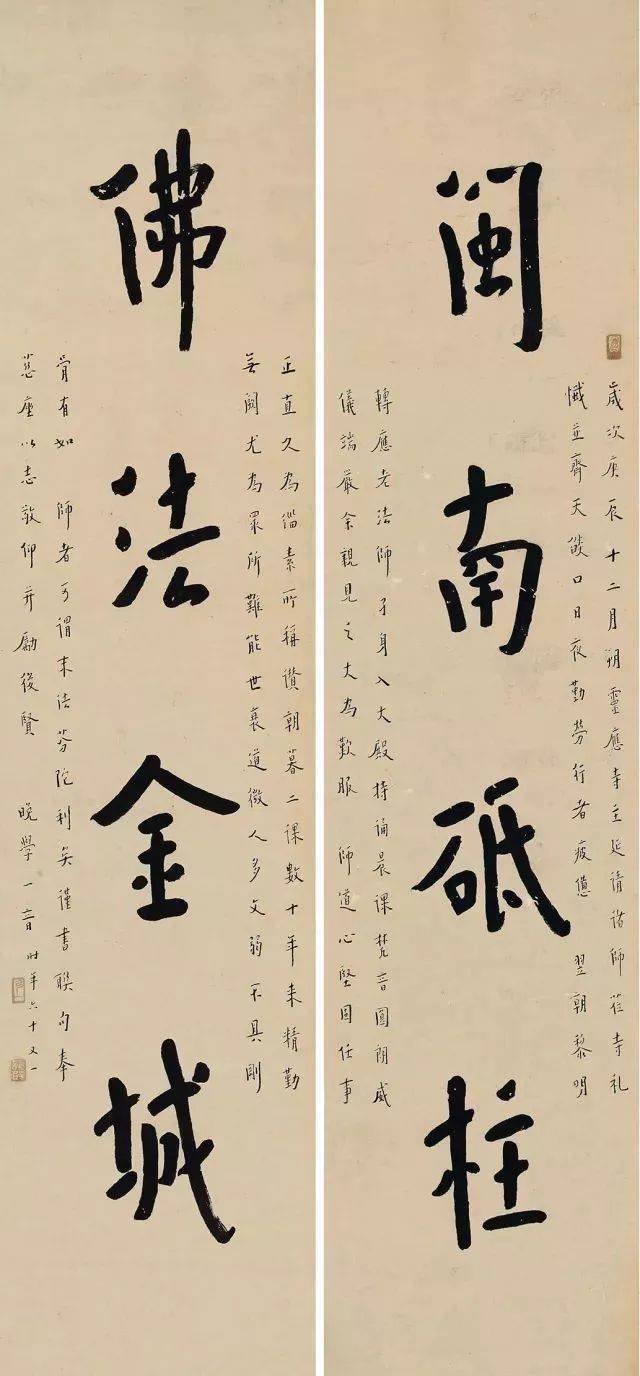 閩南砥柱
歲次庚辰十二月朔靈應寺主延請諸師蒞寺礼
懺並齊天燄口日夜勤勞行者疲憊 翌朝黎明
轉應老法師孑身入大殿持誦晨課梵音圓朗威
儀端嚴余親見之大為歎服 師道心堅固任事
佛法金城
正直久為緇素所稱讚朝暮二課數十年來精勤
無闕尤為眾所難能世衰道微人多文弱不具剛
骨有如 師者可謂末法芬陀利矣謹書聯句奉
慈座以志敬仰并勵後賢 晚學一音時年六十又一